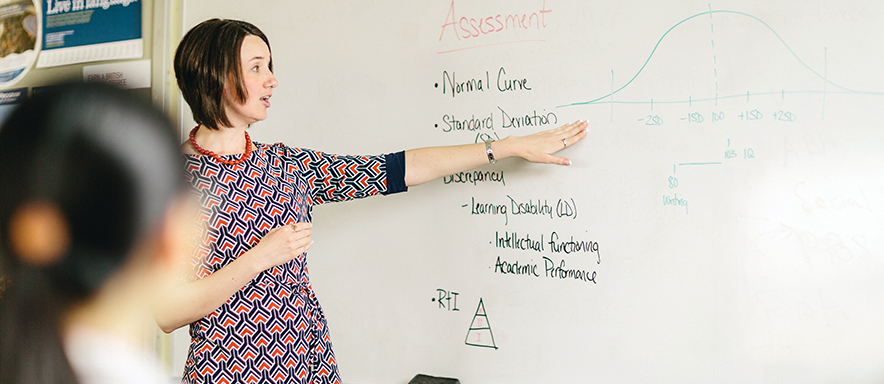 Live in language
Assessment
• Normal Curve
• Standard Deviation
(SD)
Discrepancy
- Learning Disability (LD)
· Intellectual functioning
· Academic Performance
• RtI
-2SD -1SD 100 +1SD +2SD
103 IQ
80
Writing